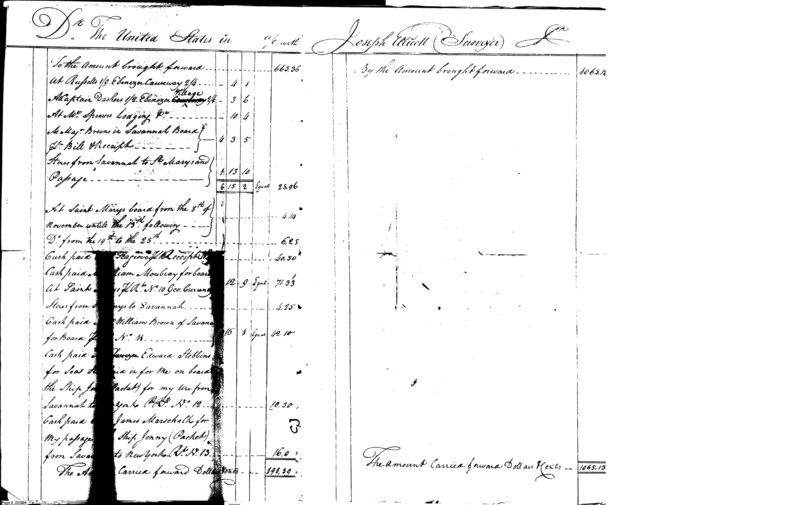 Dr. The United States in a/c with Joseph Ellicott (Surveyor) Cr
To the Amount brought forward 665.36
At Russells 1/2 Ebenezer Causeway 2/4 - 4 1
At Captain Dashers 1/2 Ebenezer Village 2/4 - 3 6
At Mr. Spencers Lodging &c - 10 4
At Majr. Browns in Savannah Board
pr. Bill & Receipt 4 3 5
Stores from Savannah to St. Marys and
Passage 13 10
6 15 2 Equal 28.96
At Saint Marys board from the 8th of
November untill the 13th following 4.14
Do. from the 19th to the 25th 6.25
Cash paid Receipt 40.50
Cash paid William Moubray for board
At Saint Rt. No. 10 Geo. Curren 12 9 Equal 71.33
Stores from to Savannah 4.25
Cash paid William Brown of Savan
for Board No. 11 15 Equal 42.10
Cash paid Edward Stebbins
for Seas laid in for me on board
the Ship Packet) for my use from
Savannah to York No. 12 10.50
Cash paid James Marschalk for
my passage Ship Jenny (Packet)
from Savan to New York Rt. No. 13 16.0
The A Carried forward Dollars
By the Amount brought forward 1065.13
The amount Carried forward Dollars & Cents 1065.13